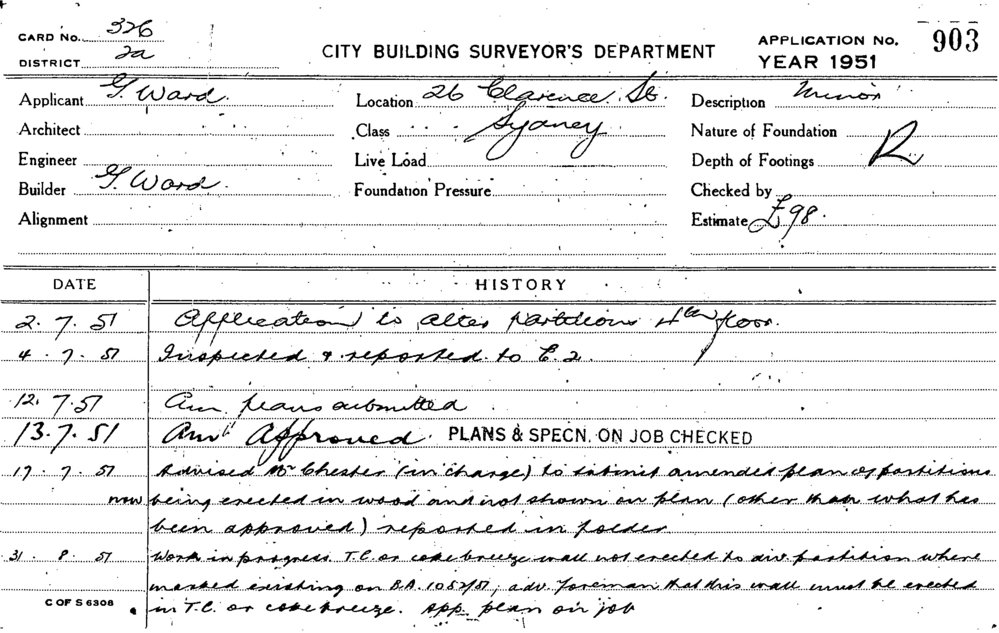 CARD No. 326
DISTRICT 2a
CITY BUILDING SURVEYOR'S DEPARTMENT
APPLICATION No. 903
YEAR 1951
Applicant G. Ward. Location 26 Clarence St. Description Minor
Architect Class Sydney Nature of Foundation
Engineer Live Load Depth of Footings R
Builder G. Ward. Foundation Pressure Checked by
Alignment Estimate £98.
DATE HISTORY
2.7.51 Application to alter partitions 4th floor.
4.7.51 Inspected & reported to E.2.
12.7.51 Am. plans submitted
13.7.51 Am'd Approved. PLANS & SPECN. ON JOB CHECKED
17.7.51 Advised Mr Chester (in charge) to submit amended plan of partitions
now being erected in wood and not shown on plan (other than what has
been approved) reported in folder
31.8.51 Work in progress. T.C. or coke breeze wall not erected to div. partition where
marked existing on B.A. 1052/51, adv. foreman that this wall must be erected
in T.C. or coke breeze. App. plan on job
C OF S 6308